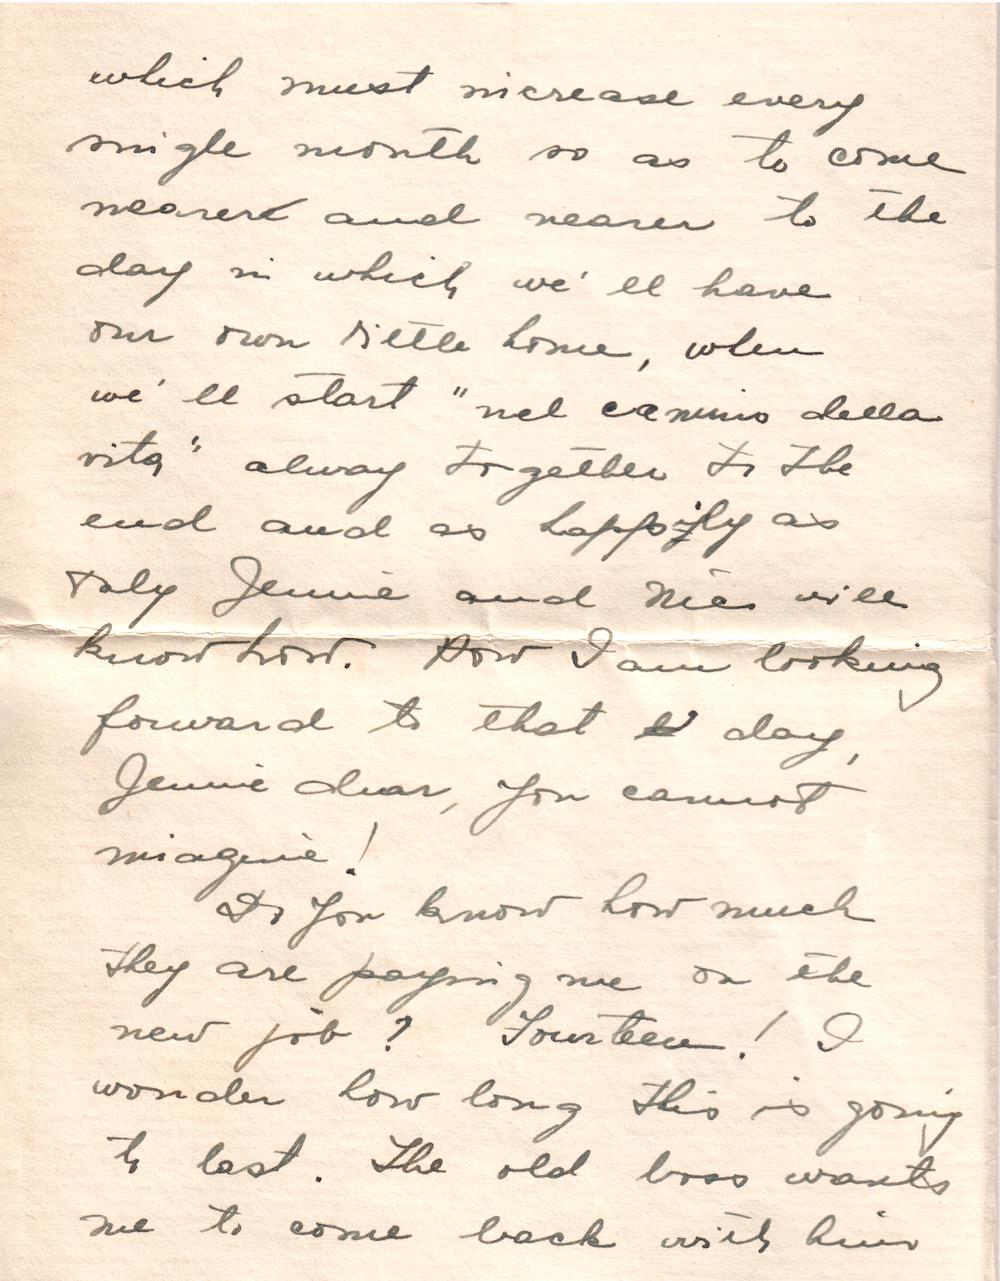 which must increase every
single month so as to come
nearer and nearer to the
day in which we'll have
our own little home, when
we'll start "nel camino della
vita" alway together to the
end and as happily as
only Jennie and Nic. will
know how. How I am looking
forward to that day,
Jennie dear, you cannot
imagine!
Do you know how much
they are paying me on the
new job? Fourteen! I
wonder how long this is going
to last. The old boss wants
me to come back with him